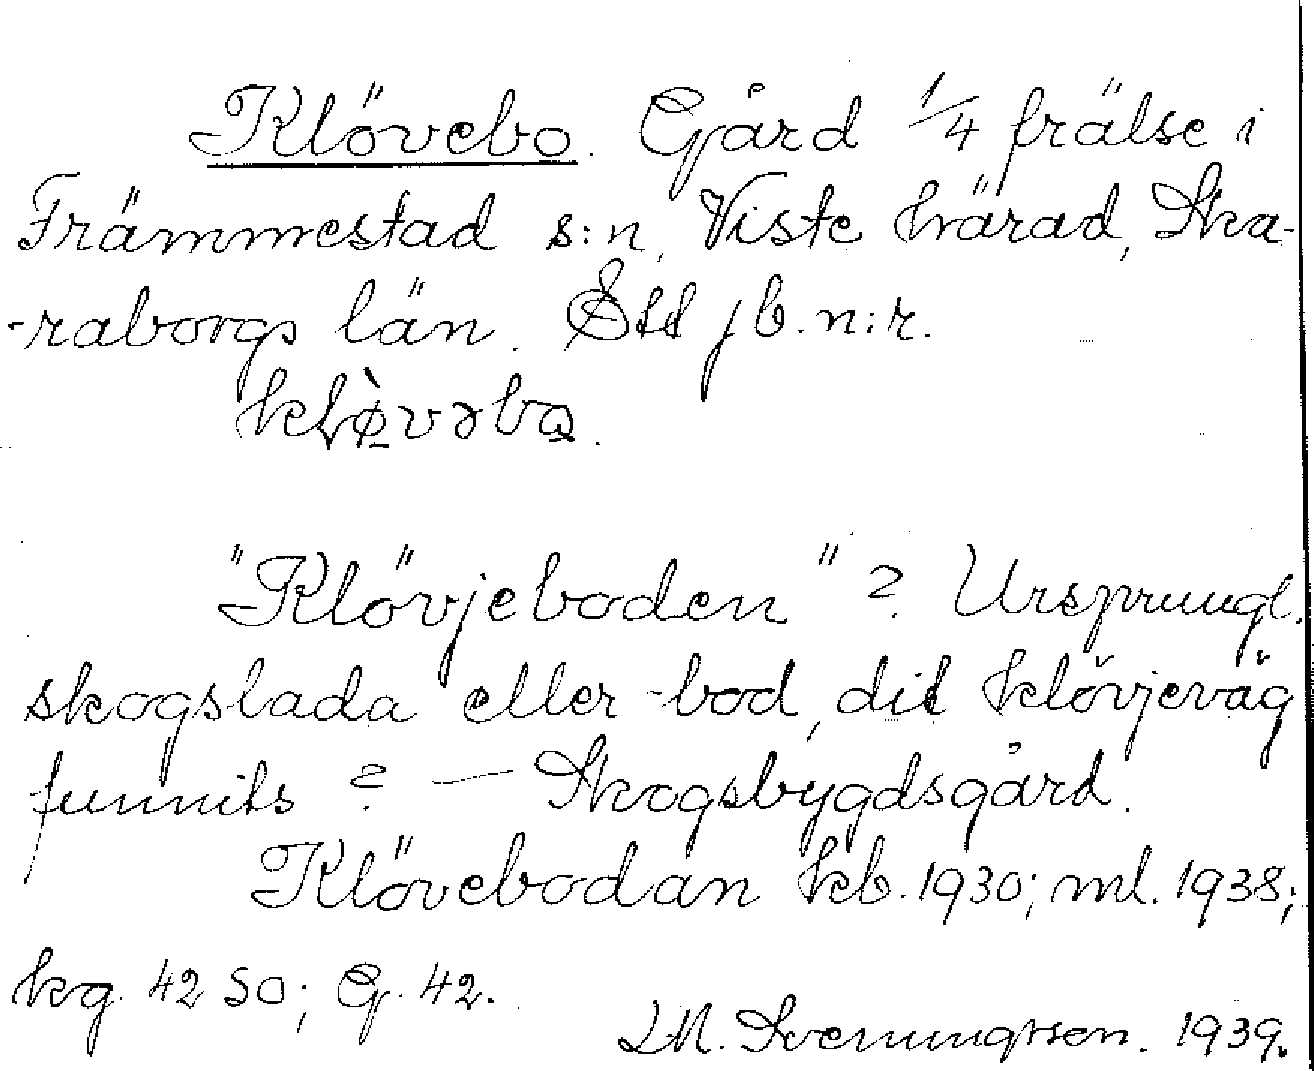 Klövebo. Gård 1/4 frälse i
Främmestad s:n, Viste härad, Ska-
-raborgs län. Ett jb.n:r.
"Klövjeboden"? Ursprungl.
skogslada eller -bod, dit klövjeväg
funnits? — Skogsbygdsgård.
Klövebodan kb. 1930; ml. 1938;
kg. 42 SO; G. 42.
Svenungsson. 1939.